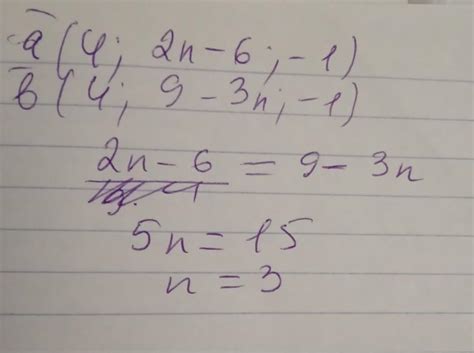 a (4; 2n-6; -1)
b (4; 9-3n; -1)
2n-6 = 9-3n
5n = 15
n = 3